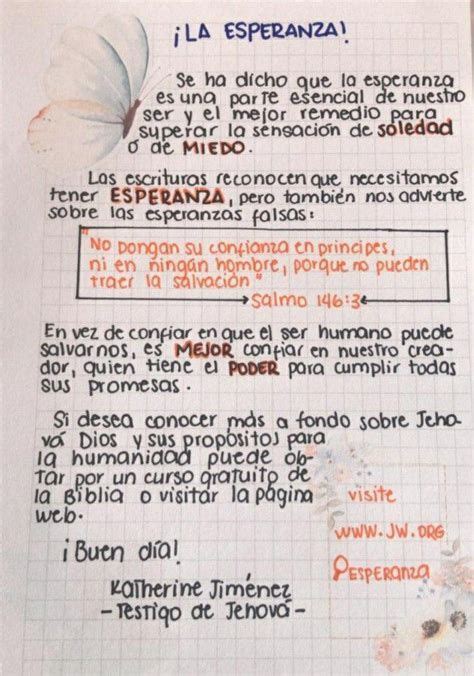 ¡LA ESPERANZA!
Se ha dicho que la esperanza
es una parte esencial de nuestro
ser y el mejor remedio para
superar la sensación de soledad
o de MIEDO.
Las escrituras reconocen que necesitamos
tener ESPERANZA, pero también nos advierte
sobre las esperanzas falsas:
"No pongan su confianza en príncipes,
ni en ningún hombre, porque no pueden
traer la salvación"
Salmo 146:3
En vez de confiar en que el ser humano puede
salvarnos, es MEJOR confiar en nuestro crea-
dor, quien tiene el PODER para cumplir todas
sus promesas.
Si desea conocer más a fondo sobre Jeho-
vá Dios y sus propósitos para
la humanidad puede op-
tar por un curso gratuito de
la Biblia o visitar la página
web.
visite
www.JW.ORG
ESPERANZA
¡Buen día!
Katherine Jiménez
- Testigo de Jehová -